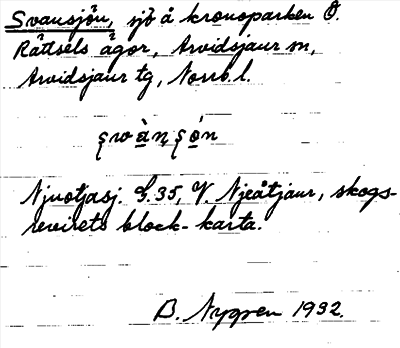 Svansjön, sjö å kronoparken Ö.
Rättsels ägor, Arvidsjaur sn,
Arvidsjaur tg, Norrb. l.
Njuotjasj. S. 35, V. Njeåtjaur, skogs-
revirets block-karta.
B. Nygren 1932.